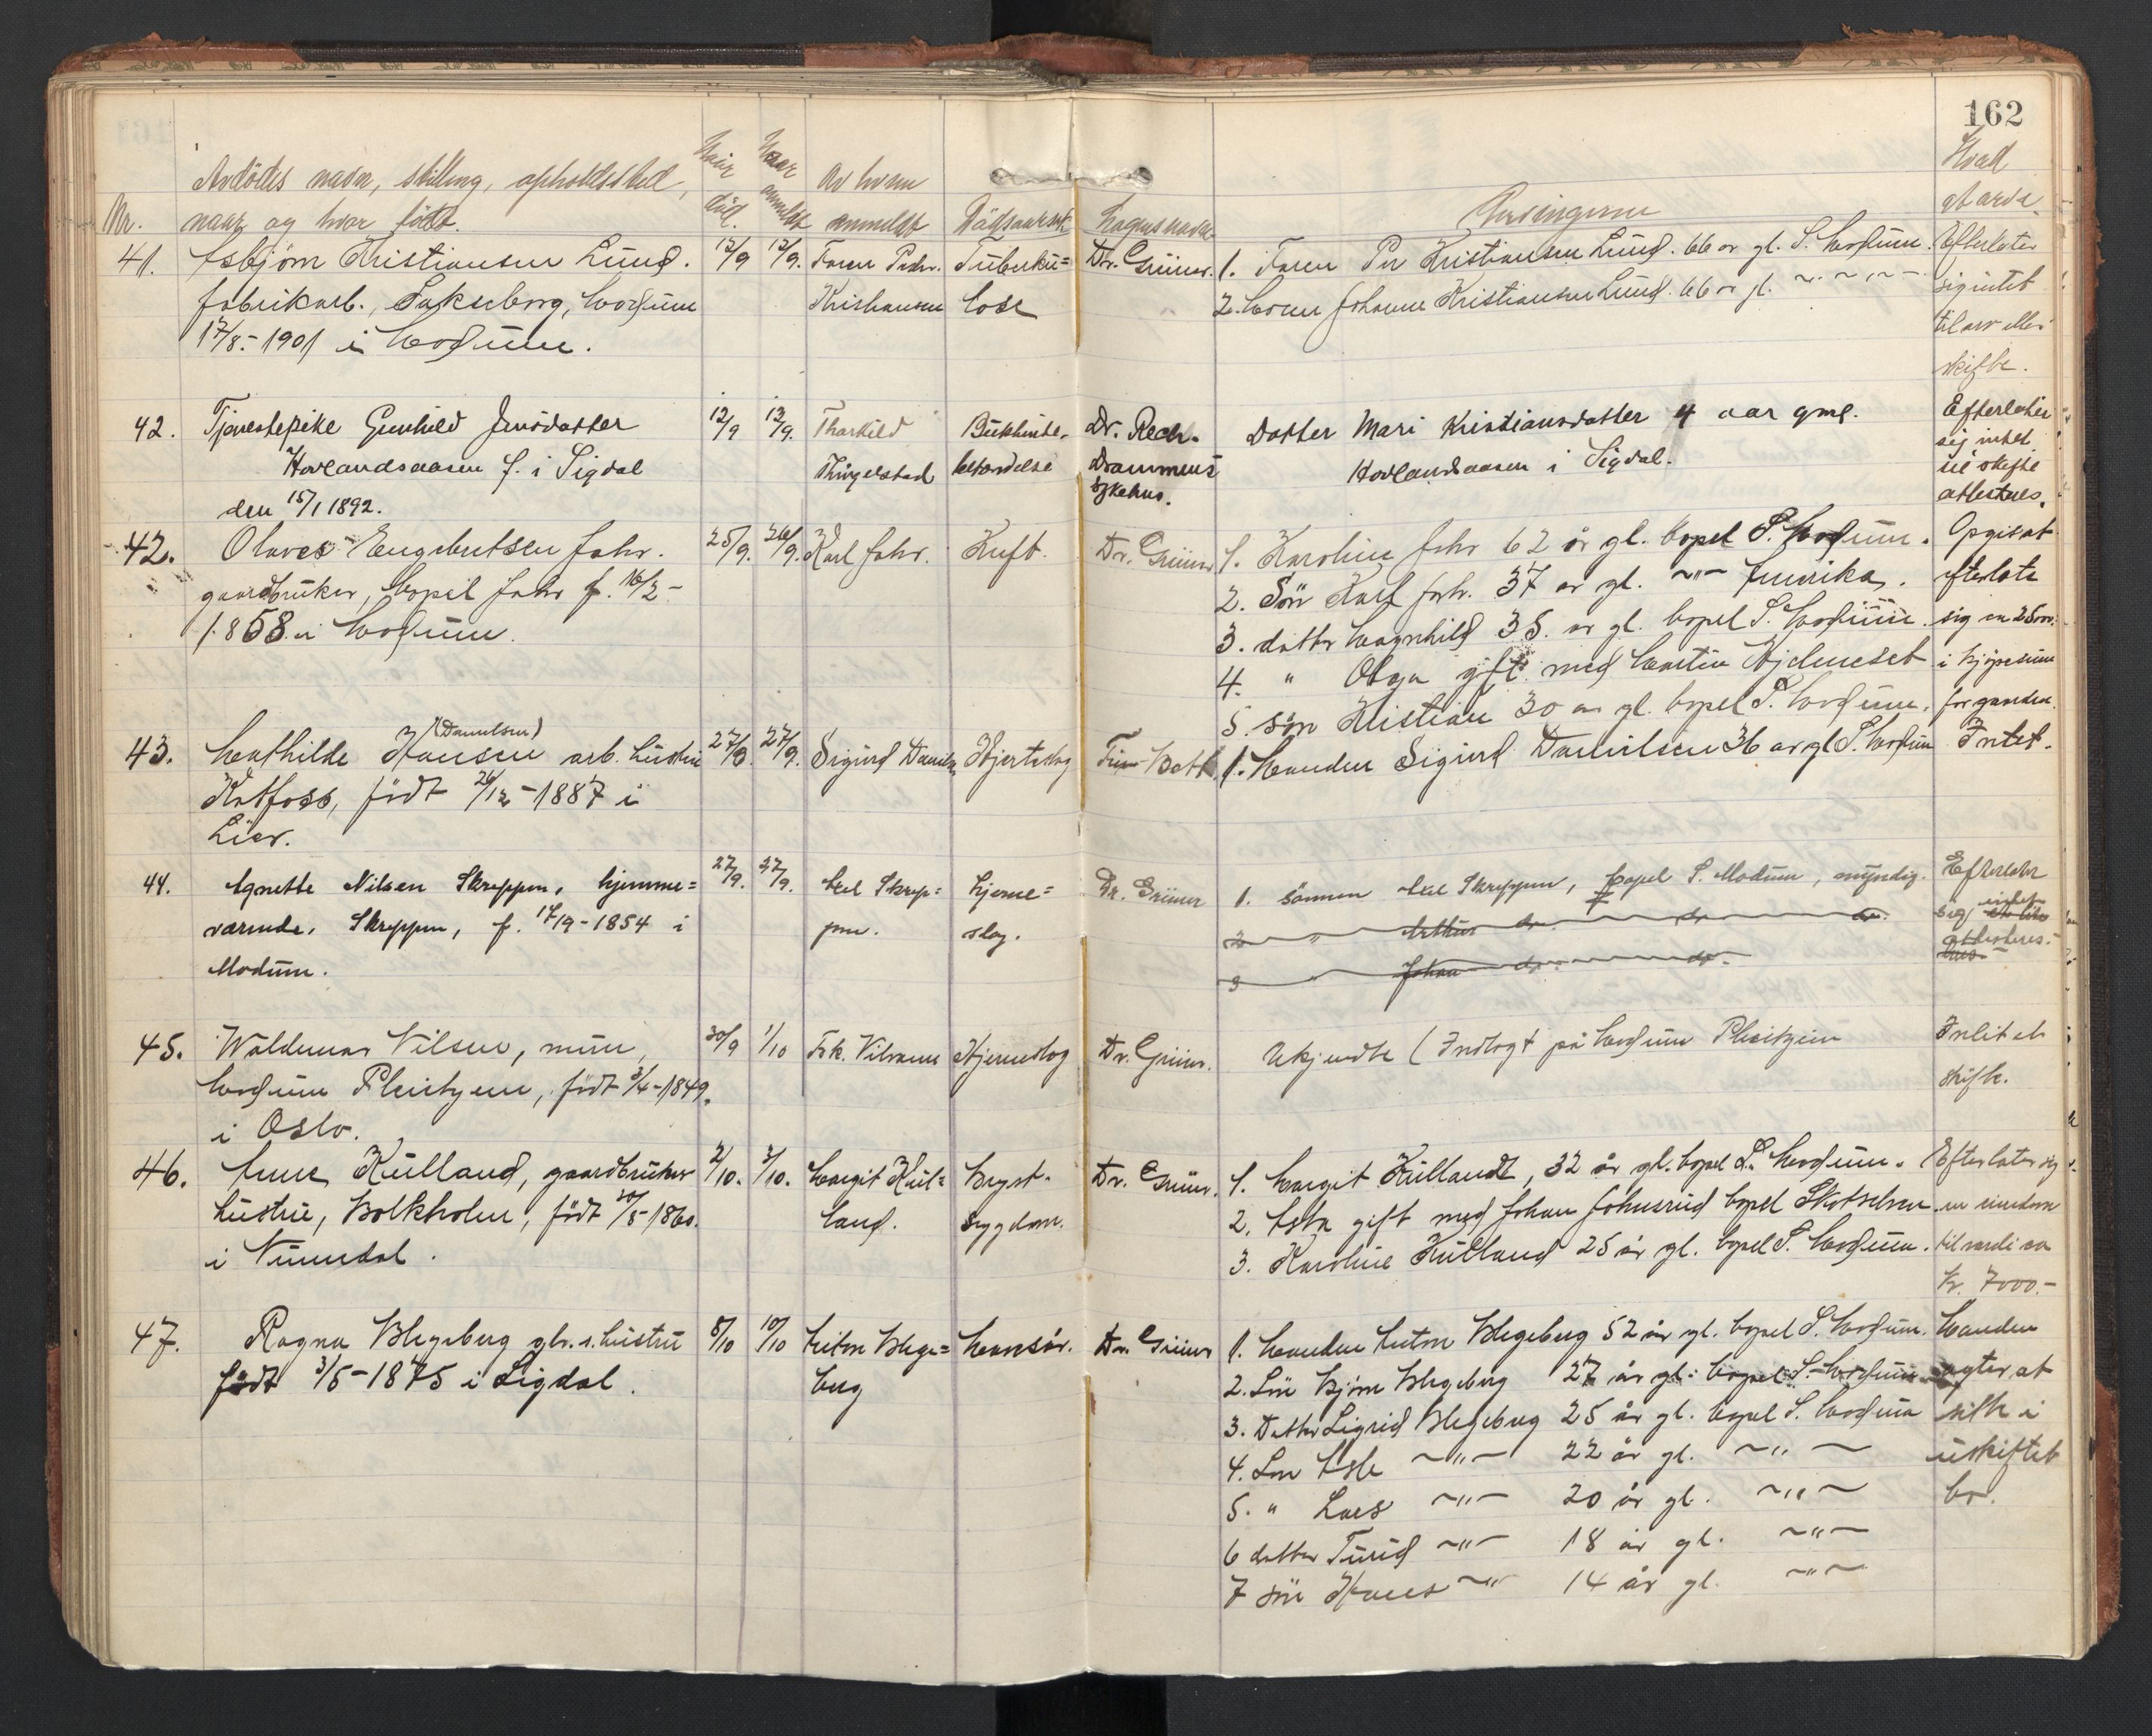 162
Nr.
Avdödes navn, stilling, opholdssted,
naar og hvor født.
Naar död.
Naar anmeldt
Av hvem anmeldt
Dødsaarsak
Lægens navn
Arvingerne
Hvad at arve
41. Asbjørn Kristiansen Lund.
fabrikarb., Sakseborg, Modum
17/8.-1901 i Modum.
12/9
12/9.
Faren Peder
Kristiansen
Tuberku=
lose
Dr. Grüner.
1. Faren Per Kristiansen Lund. 66 år gl. S. Modum.
2. Moren Johanne Kristiansen Lund. 66 år gl. ~ " ~ " ~
Efterlater
sig intet
til arv eller
skifte.
42. Tjenestepike Gunhild Jensdatter
Hovlandsaasen f. i Sigdal
den 15/1 1892.
12/9
13/9.
Tharkild
Thingelstad
Bukhinde-
betændelse
Dr. Reck.
Drammens
sykehus.
Datter Mari Kristiansdatter 4 aar gml.
Hovlandsaasen i Sigdal.
Efterlater
sig intet
til skifte
attesteres.
42. Olaves Engebretsen Johr.
gaardbruker, bopel Johr f. 16/2-
1858 i Modum.
25/9.
26/9.
Karl Johr.
Kreft.
Dr. Grüner
1. Karoline Johr 62 år gl. bopel S. Modum.
2. Sön Karl Johr. 37 år gl. ~"~ Amerika.
3. datter Magnhild 35. år gl. bopel S. Modum.
4. " Olga gift med Martin Hjelmeset
5. søn Kristian 30 år gl. bopel S. Modum.
Opgis at
efterlate
sig ca 2500.
i kjøpesum
for gaarden.
43. Mathilde Hansen (Danielsen) arb. hustru
Katfoss, født 26/12-1887 i
Lier.
27/9.
27/9.
Sigurd Danielsen
Hjerteslag
1. Manden Sigurd Danielsen 36 år gl S. Modum
Intet.
44. Agnethe Nilsen Skreppen, hjemme=
værende, Skreppen, f. 17/9-1854 i
Modum.
27/9.
27/9.
Axel Skrep=
pen.
Hjerne=
slag.
Dr. Grüner
1. sönnen Axel Skreppen, bopel S. Modum, myndig.
2 " Arthur do. do. do.
3 " Johan do. do.
Efterlater
sig intet
attesteres.
45. Waldemar Nilsen, mur,
Modum Pleiehjem, født 3/4-1849.
i Oslo.
30/9
1/10
Frk. Vilsann
Hjerneslag
Dr. Grüner.
Ukjendte (Indlagt på Modum Pleiehjem
Intet at
skifte.
46. Anne Kulland, gaardbruker
hustru, Bolkholm, født 20/5-1860.
i Numedal.
2/10.
3/10.
Margit Kul=
land.
Bryst-
sygdom.
Dr. Grüner.
1. Margit Kullandt, 32 år gl. bopel S. Modum.
2. Asta gift med Johan Johnsrud bopel Skotselven.
3. Karoline Kulland 25 år gl. bopel S. Modum.
Efterlater sig
en eiendom
til værdi ca
kr. 7000.-
47. Ragna Blegeberg gbr.s. hustru
født 3/5-1875 i Sigdal.
8/10
10/10
Anton Blege=
berg
Mavesår.
Dr. Grüner
1. Manden Anton Blegeberg 52 år gl. bopel S. Modum.
2. Sön Bjørn Blegeberg 27 år gl. bopel S. Modum
3. Datter Sigrid Blegeberg 25 år gl. bopel S. Modum
4. Søn Asle ~"~ 22 år gl. ~"~
5. " Lars ~"~ 20 år gl. ~"~
6 datter Turid ~"~ 18 år gl. ~"~
7 søn Hans ~"~ 14 år gl. ~"~
Manden
agter at
sitte i
uskiftet
bo.